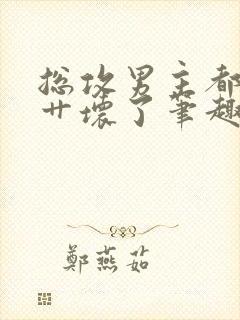 总攻男主都
艹坏了笔趣
鄭燕茹